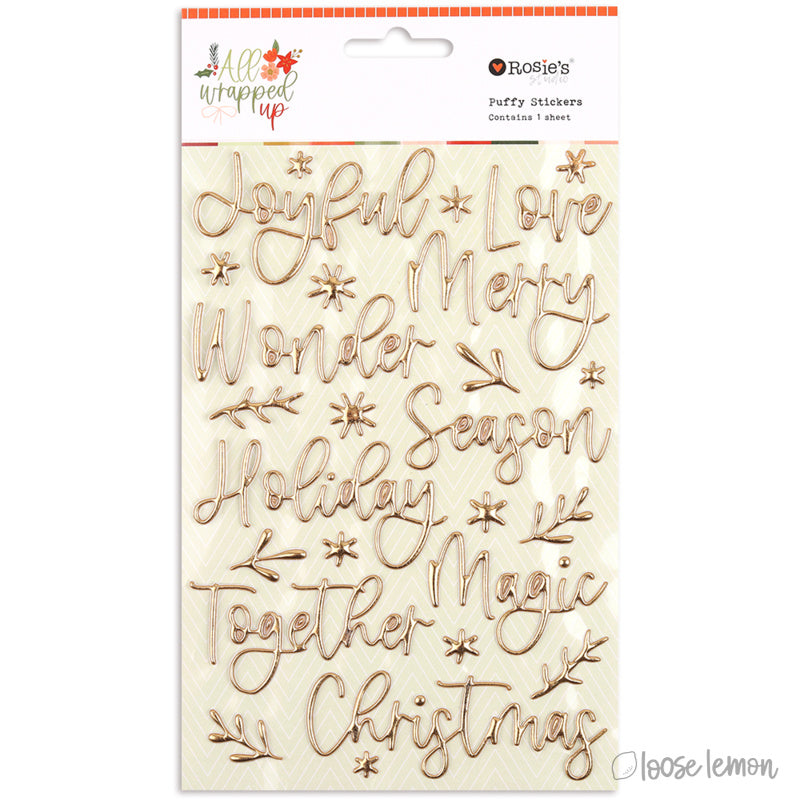 All
wrapped
up
Rosie's
studio
Puffy Stickers
Contains 1 sheet
Joyful
Love
Merry
Wonder
Season
Holiday
Magic
Together
Christmas
loose lemon